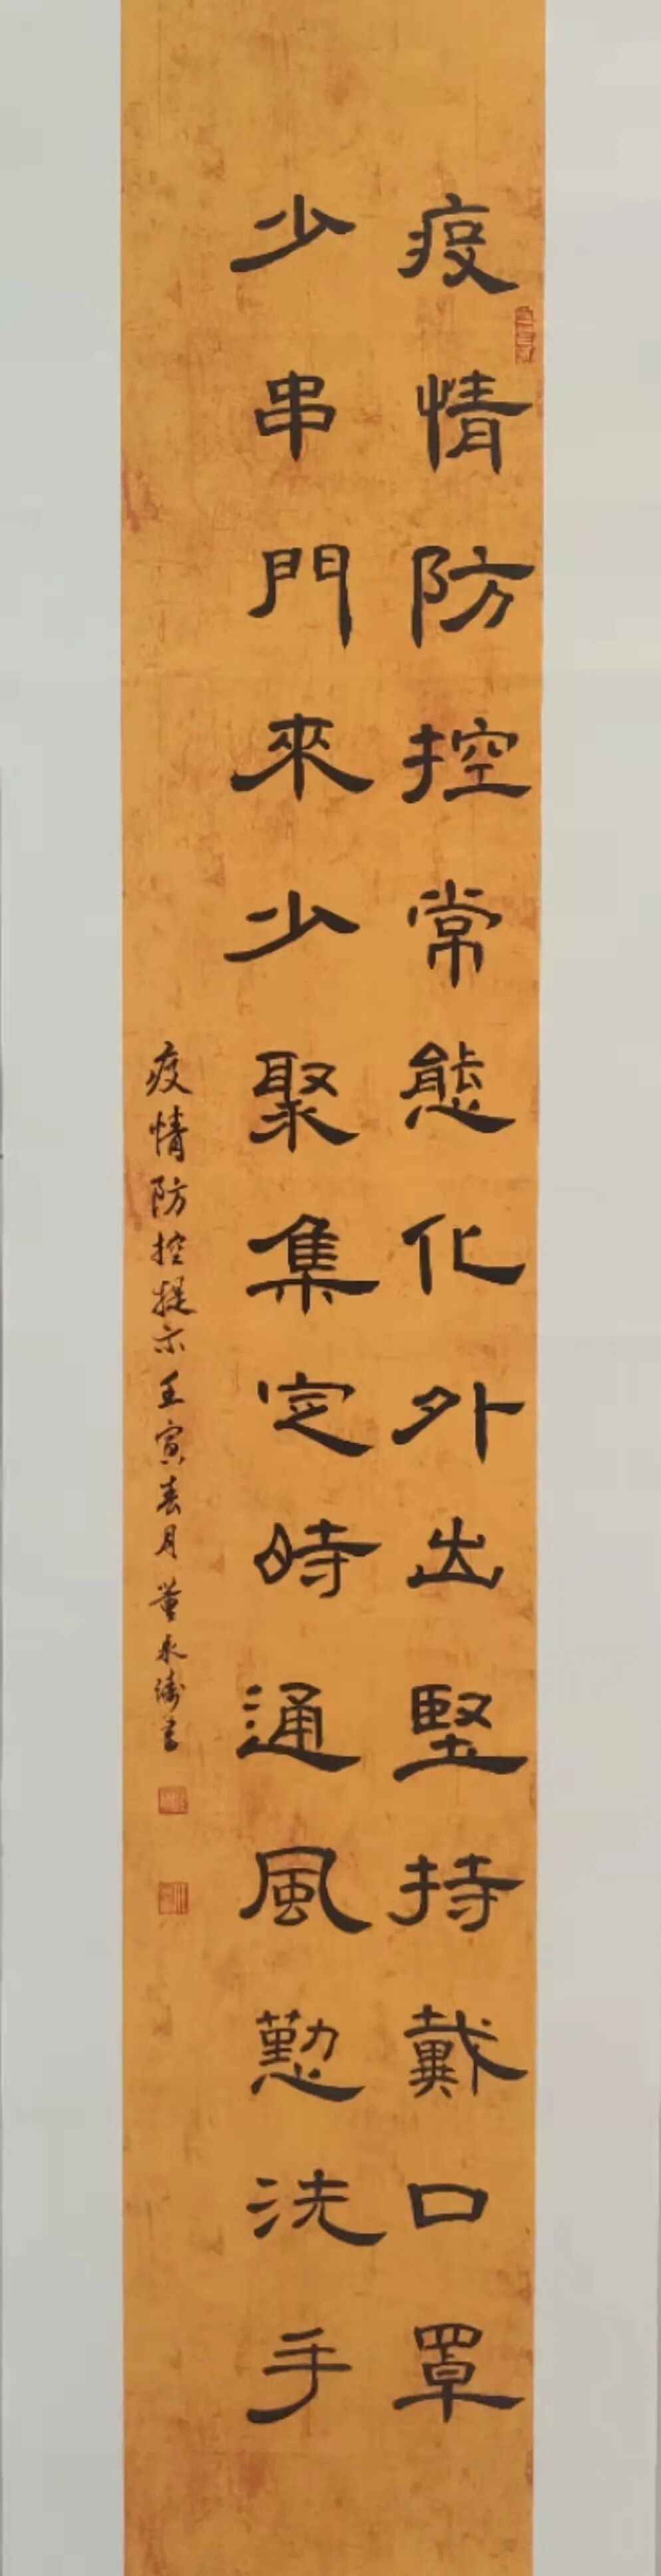 疫情防控常態化外出堅持戴口罩
少串門來少聚集定時通風懃洗手
疫情防控提示壬寅春月董永濤書